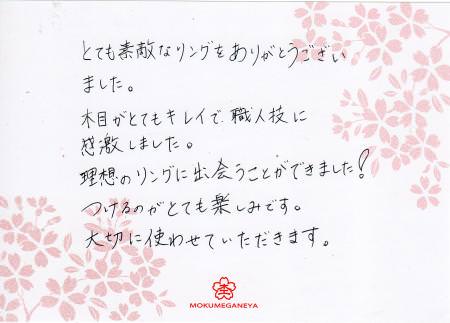 とても素敵なリングをありがとうござい
ました。
木目がとてもキレイで、職人技に
感激しました。
理想のリングに出会うことができました!
つけるのがとても楽しみです。
大切に使わせていただきます。
MOKUMEGANEYA